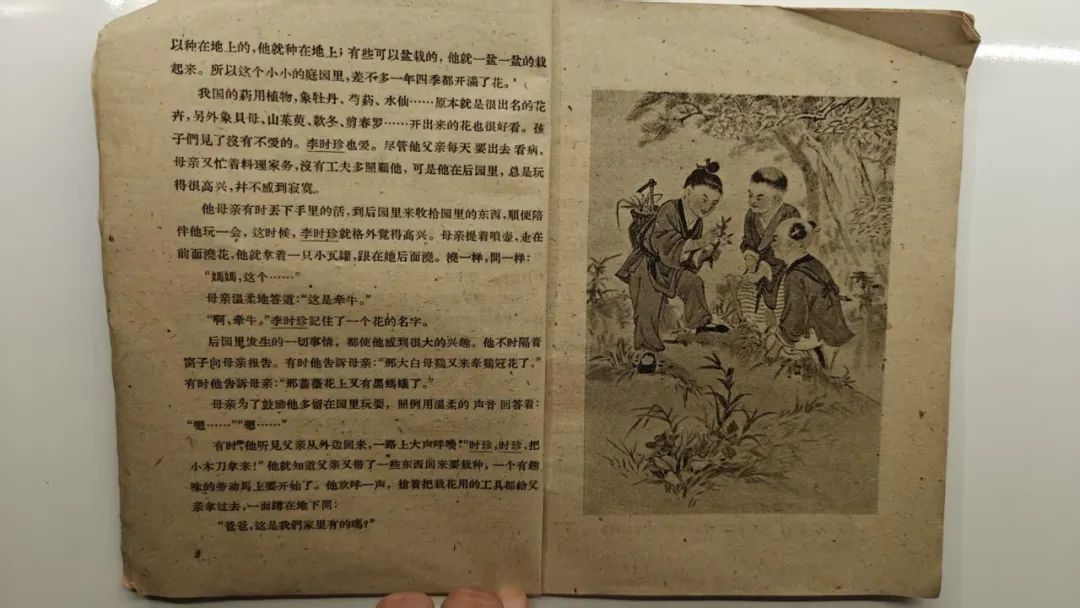 以种在地上的，他就种在地上；有些可以盆栽的，他就一盆一盆的栽
起来。所以这个小小的庭园里，差不多一年四季都开满了花。
我国的药用植物，象牡丹、芍药、水仙……原本就是很出名的花
卉，另外象貝母、山茱萸、款冬、剪春罗……开出来的花也很好看。孩
子們見了沒有不爱的。李时珍也爱。尽管他父亲每天要出去看病，
母亲又忙着料理家务，沒有工夫多照顧他，可是他在后园里，总是玩
得很高兴，幷不感到寂寞。
他母亲有时丢下手里的活，到后园里来收拾园里的东西，順便陪
伴他玩一会，这时候，李时珍就格外覚得高兴。母亲提着噴壶，走在
前面澆花，他就拿着一只小瓦罐，跟在她后面澆。澆一样，問一样：
“媽媽，这个……”
母亲溫柔地答道：“这是牵牛。”
“啊，牵牛。”李时珍記住了一个花的名字。
后园里发生的一切事情，都使他感到很大的兴趣。他不时隔着
窗子向母亲报告。有时他告訴母亲：“那大白母鷄又来牵鷄冠花了。”
有时他告訴母亲：“那薔薇花上又有黑螞蟻了。”
母亲为了鼓励他多留在园里玩耍，照例用溫柔的声音回答着：
“嗯……”“嗯……”
有时，他听見父亲从外边回来，一路上大声呼喚：“时珍，时珍，把
小木刀拿来！”他就知道父亲又带了一些东西回来要栽种，一个有趣
味的劳动馬上要开始了。他欢呼一声，搶着把栽花用的工具都給父
亲拿过去，一面蹲在地下問：
“爸爸，这是我們家里有的嗎？”
2